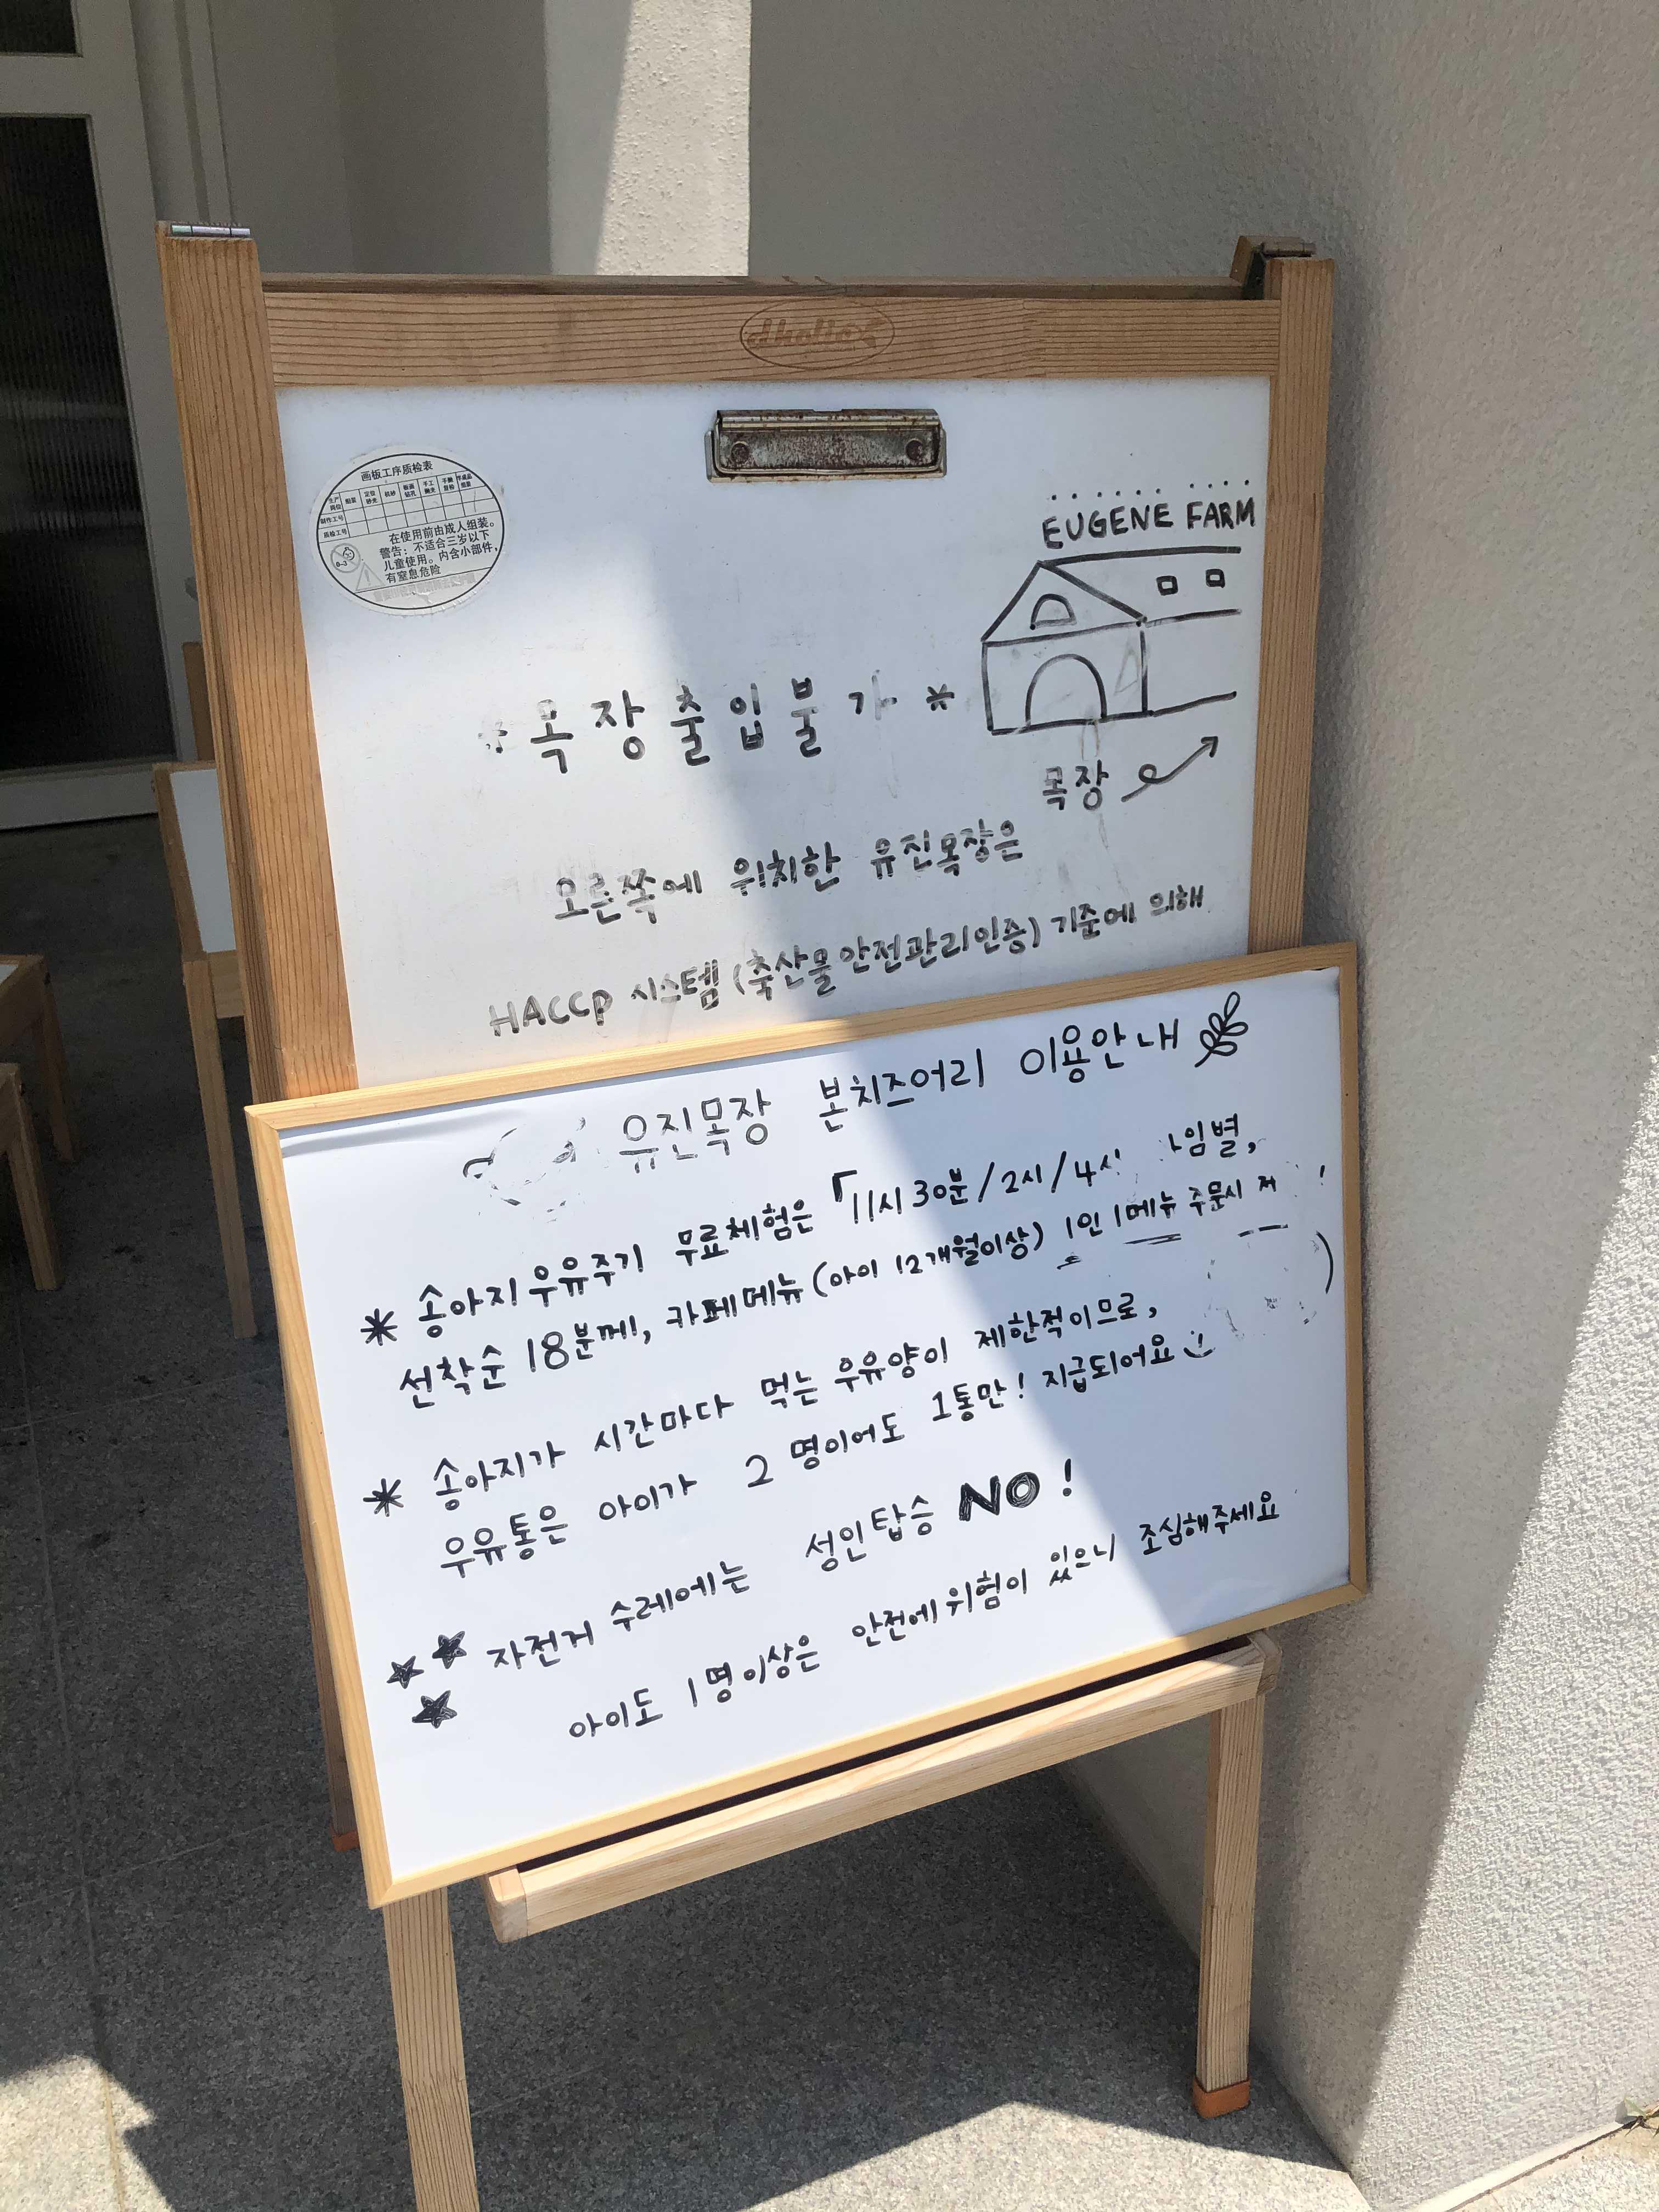 dholic
画板工序质检表
生产岗位 组装 定位砂光 机砂 板面钻孔 手工抛光 手腕首检
制作工号
质检工号
在使用前由成人组装。
警告：不适合三岁以下
儿童使用。内含小部件，
有窒息危险
0-3
EUGENE FARM
* 목장출입불가 *
목장
오른쪽에 위치한 유진목장은
HACCP 시스템 (축산물안전관리인증) 기준에 의해
유진목장 본치즈어리 이용안내
* 송아지우유주기 무료체험은 「11시30분/2시/4시 임별,
선착순 18분께, 카페메뉴(아이 12개월이상) 1인 1메뉴 주문시 !
* 송아지가 시간마다 먹는 우유양이 제한적이므로,
우유통은 아이가 2명이어도 1통만! 지급되어요
자전거 수레에는 성인탑승 NO!
아이도 1명이상은 안전에위험이 있으니 조심해주세요